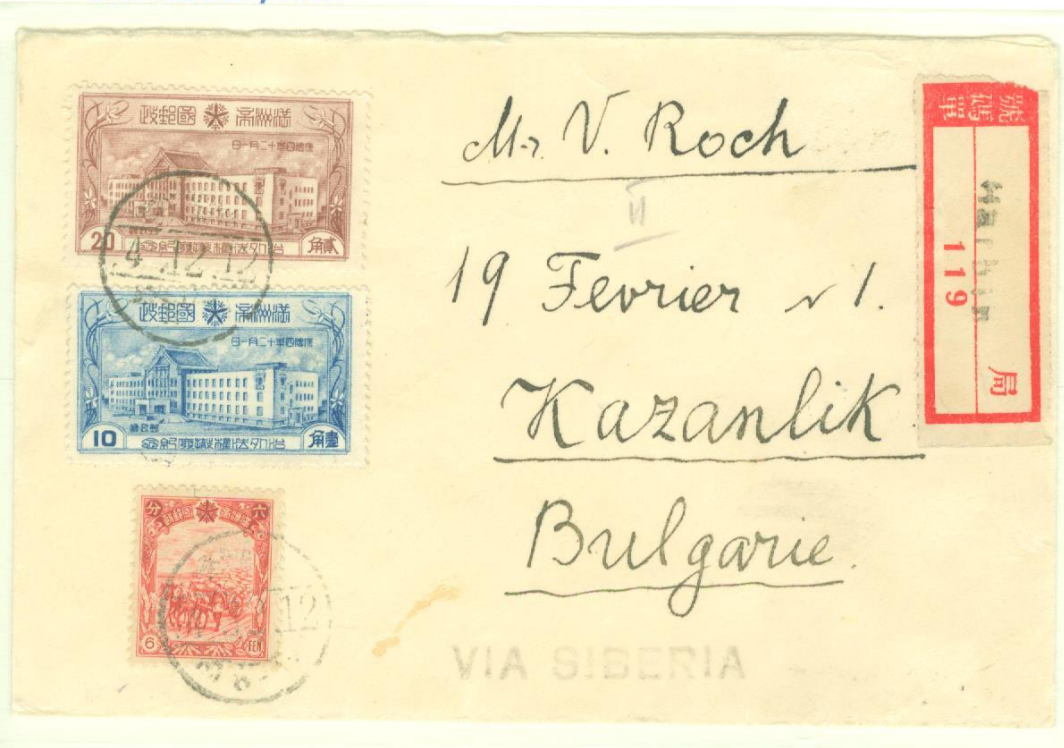 政郵國 帝洲滿
日一月二十年四德康
20 角貳
念紀廢撤權法外治
4.12.12
政郵國 帝洲滿
日一月二十年四德康
10 角壹
念紀廢撤權法外治
分 六
6 FEN
12
Mr V. Roch
II
19 Fevrier N 1.
Kazanlik
Bulgarie.
VIA SIBERIA
號碼單
Harbin
119
局